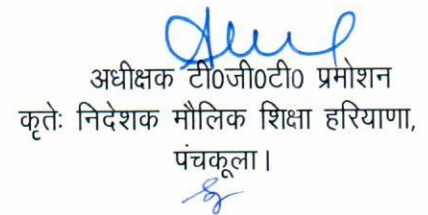 अधीक्षक टी०जी०टी० प्रमोशन
कृतेः निदेशक मौलिक शिक्षा हरियाणा,
पंचकूला।